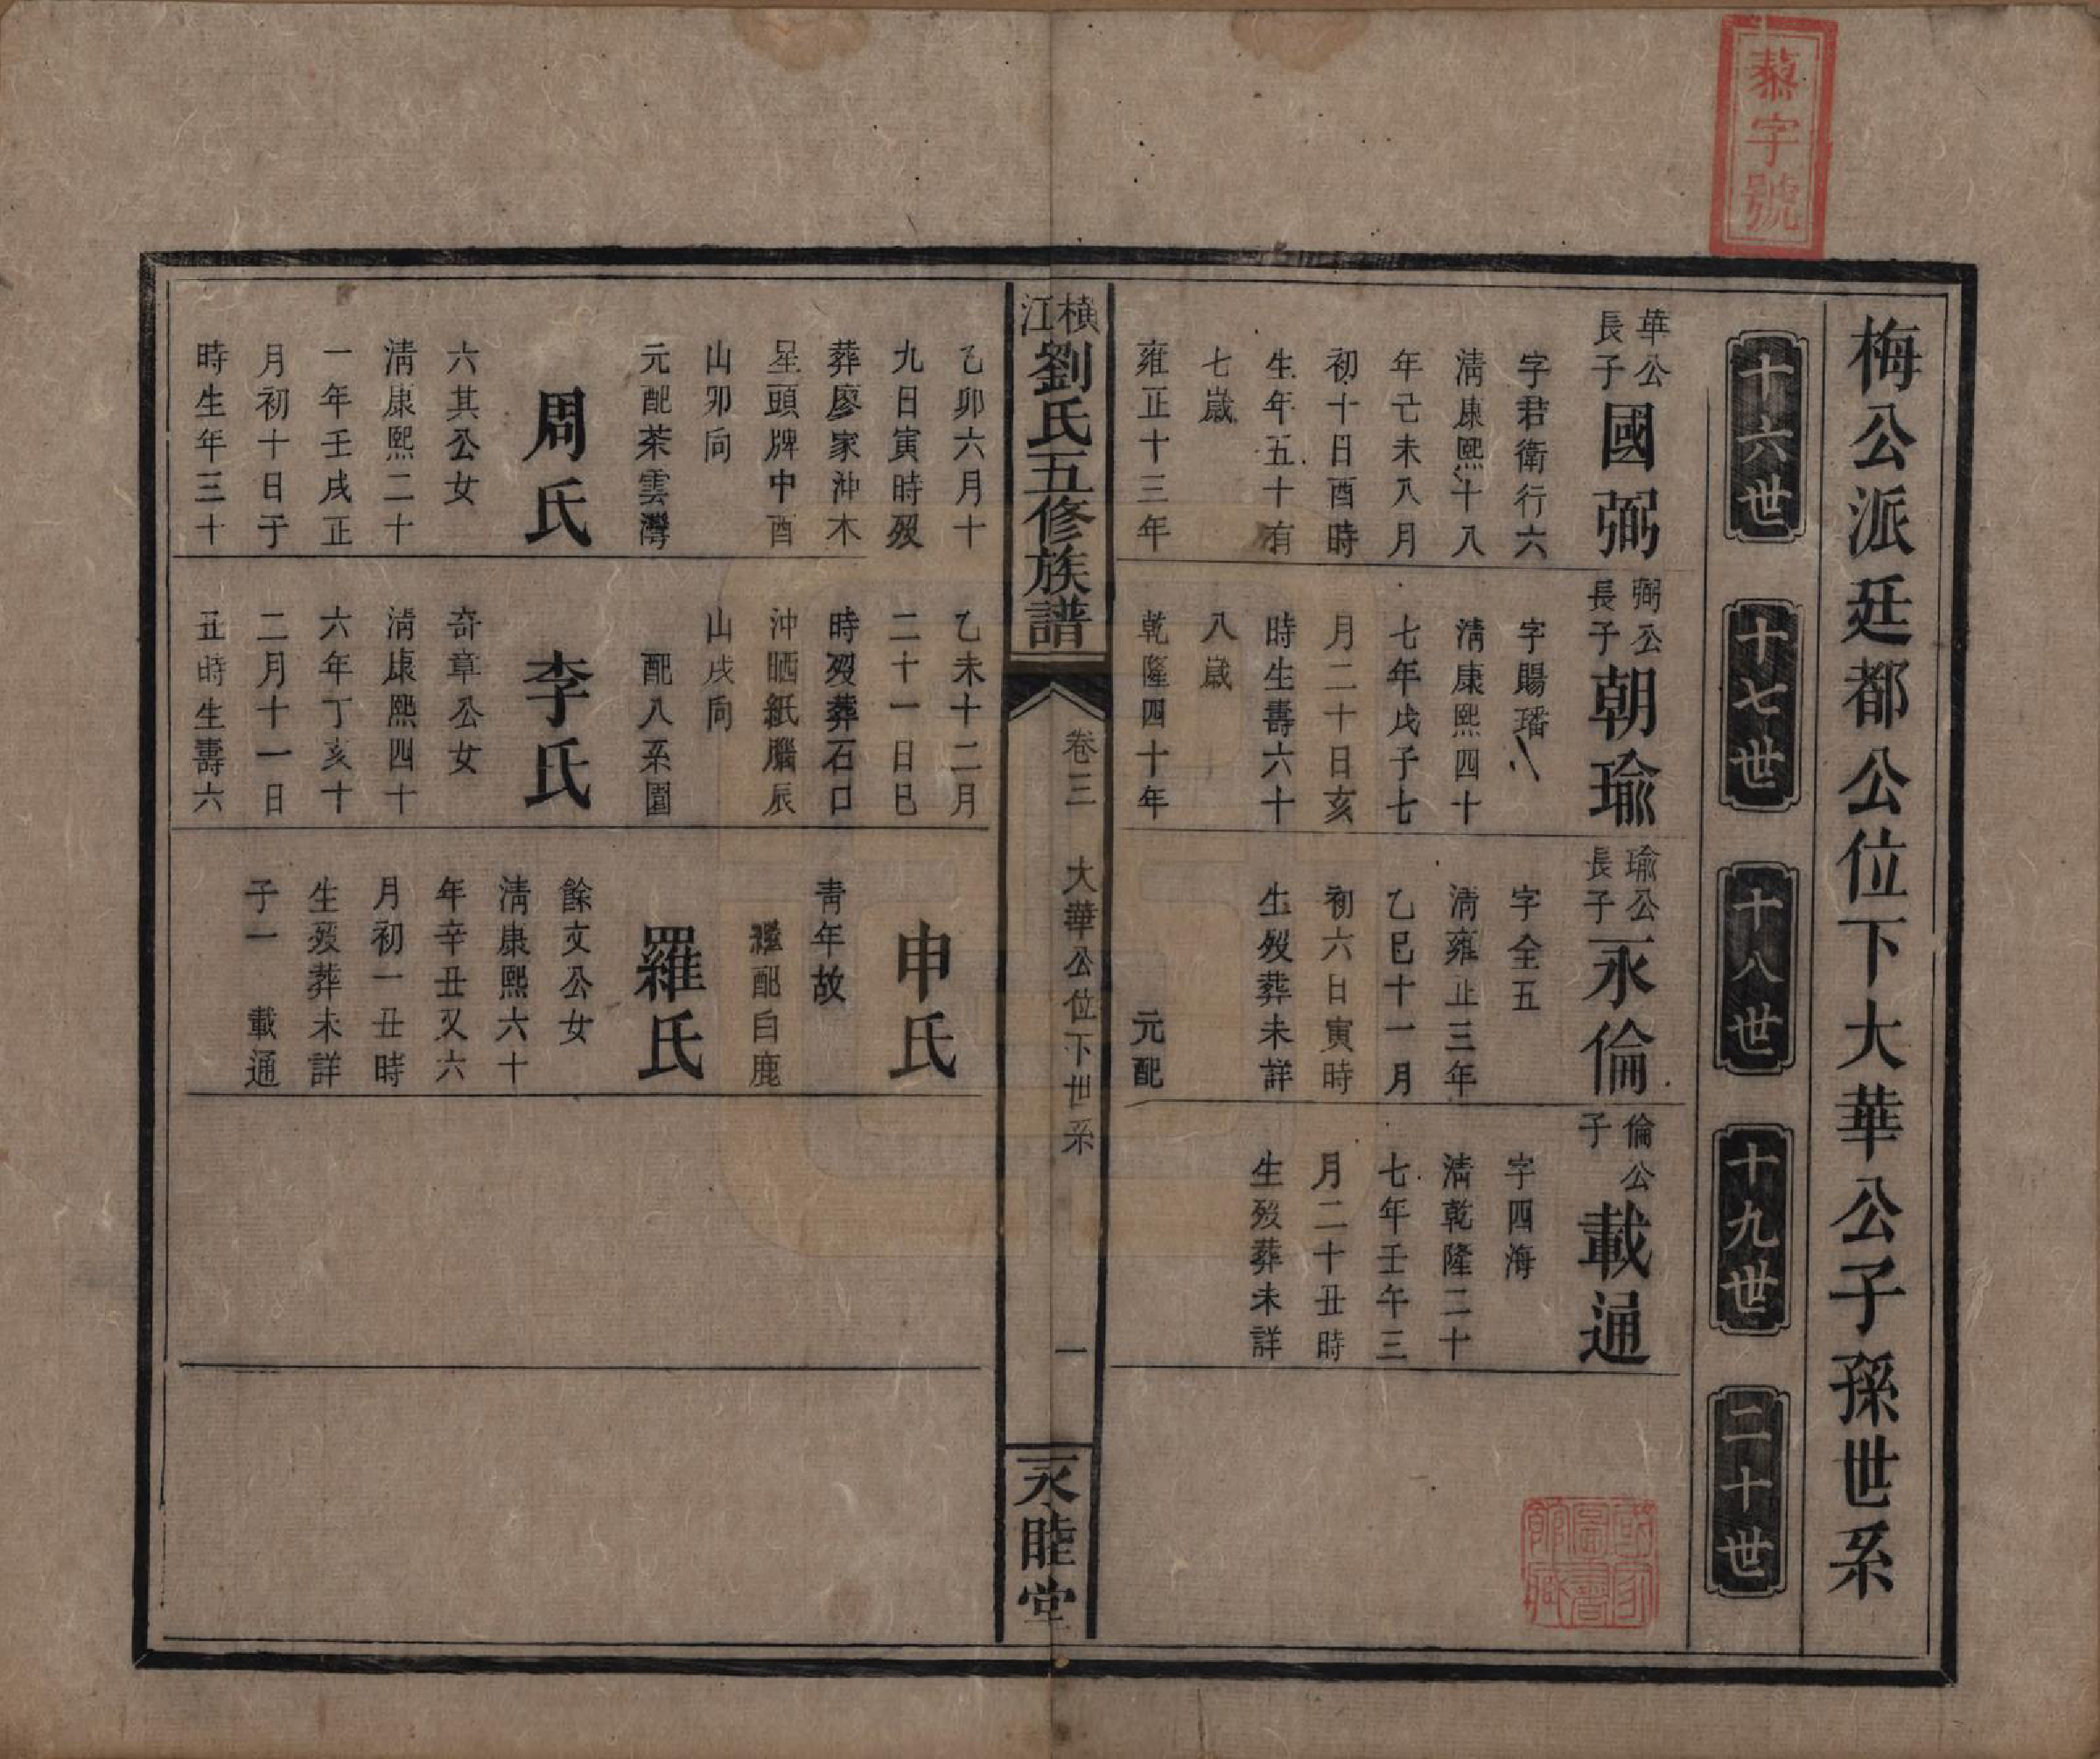 藜字號
梅公派廷都公位下大華公子孫世系
十六世
十七世
十八世
十九世
二十世
華公
長子
國弼
字君衛行六
清康熙十八
年己未八月
初十日酉時
生年五十有
七歲
雍正十三年
弼公
長子
朝瑜
字賜璠
清康熙四十
七年戊子七
月二十日亥
時生壽六十
八歲
乾隆四十年
瑜公
長子
永倫
字全五
清雍正三年
乙巳十一月
初六日寅時
生歿葬未詳
元配
倫公
子
載通
字四海
清乾隆二十
七年壬午三
月二十丑時
生歿葬未詳
國家
圖書
館藏
橫江
劉氏五修族譜
卷三
大華公位下世系
一
永睦堂
乙卯六月十
九日寅時歿
葬廖家沖木
星頭牌中酉
山卯向
元配茶雲灣
周氏
六其公女
清康熙二十
一年壬戌正
月初十日子
時生年三十
乙未十二月
二十一日巳
時歿葬石口
沖晒紙腦辰
山戌向
配八系園
李氏
奇章公女
清康熙四十
六年丁亥十
二月十一日
丑時生壽六
申氏
青年故
繼配白鹿
羅氏
餘文公女
清康熙六十
年辛丑又六
月初一丑時
生歿葬未詳
子一 載通